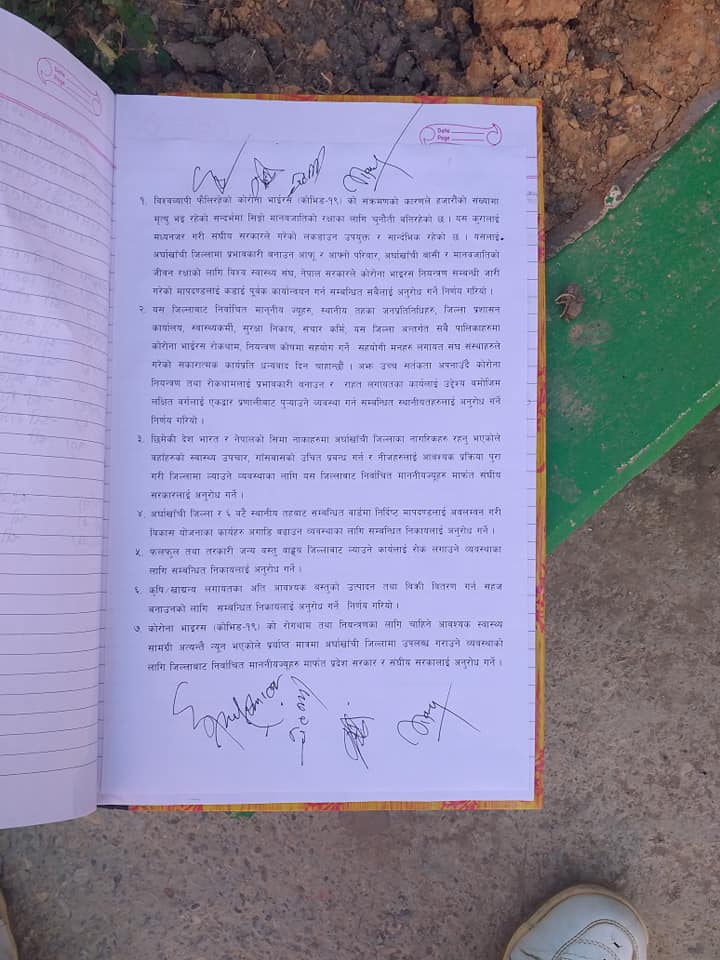 Date
Page
Date
Page
१. विश्वव्यापी फैलिरहेको कोरोना भाईरस (कोभिड-१९) को संक्रमणको कारणले हजारौंको सख्यामा
मृत्यु भइ रहेको सन्दर्भमा सिङ्गो मानवजातिको रक्षाका लागि चुनौती बनिरहेको छ । यस कुरालाई
मध्यनजर गरी संघीय सरकारले गरेको लकडाउन उपयुक्त र सान्दर्भिक रहेको छ । यसलाई
अर्घाखाँची जिल्लामा प्रभावकारी बनाउन आफू र आफ्नो परिवार, अर्घाखाँची बासी र मानवजातिको
जीवन रक्षाको लागि विश्व स्वास्थ्य संघ, नेपाल सरकारले कोरोना भाइरस नियन्त्रण सम्बन्धी जारी
गरेको मापदण्डलाई कडाई पूर्वक कार्यान्वयन गर्न सम्बन्धित सबैलाई अनुरोध गर्ने निर्णय गरियो ।
२. यस जिल्लाबाट निर्वाचित माननीय ज्यूहरु, स्थानीय तहका जनप्रतिनिधिहरु, जिल्ला प्रशासन
कार्यालय, स्वास्थ्यकर्मी, सुरक्षा निकाय, संचार कर्मि, यस जिल्ला अन्तर्गत सबै पालिकाहरुमा
कोरोना भाईरस रोकथाम, नियन्त्रण कोषमा सहयोग गर्ने सहयोगी मनहरु लगायत संघ संस्थाहरुले
गरेको सकारात्मक कार्यप्रति धन्यवाद दिन चाहान्छौं । अझ उच्च सर्तकता अपनाउँदै कोरोना
नियन्त्रण तथा रोकथामलाई प्रभावकारी बनाउन र राहत लगायतका कार्यलाई उद्देश्य बमोजिम
लक्षित वर्गलाई एकद्वार प्रणालीबाट पुऱ्याउने व्यवस्था गर्न सम्बन्धित स्थानीयतहरुलाई अनुरोध गर्ने
निर्णय गरियो ।
३. छिमेकी देश भारत र नेपालको सिमा नाकाहरुमा अर्घाखाँची जिल्लाका नागरिकहरु रहनु भएकोले
वहाँहरुको स्वास्थ्य उपचार, गाँसबासको उचित प्रबन्ध गर्न र नीजहरुलाई आवश्यक प्रक्रिया पुरा
गरी जिल्लामा ल्याउने व्यवस्थाका लागि यस जिल्लाबाट निर्वाचित माननीयज्यूहरु मार्फत संघीय
सरकारलाई अनुरोध गर्ने ।
४. अर्घाखाँची जिल्ला र ६ वटै स्थानीय तहबाट सम्बन्धित वार्डमा निर्दिष्ट मापदण्डलाई अवलम्वन गरी
विकास योजनाका कार्यहरु अगाडि बढाउन व्यवस्थाका लागि सम्बन्धित निकायलाई अनुरोध गर्ने ।
५. फलफुल तथा तरकारी जन्य वस्तु वाह्य जिल्लाबाट ल्याउने कार्यलाई रोक लगाउने व्यवस्थाका
लागि सम्बन्धित निकायलाई अनुरोध गर्ने ।
६. कृषि/खाद्यन्य लगायतका अति आवश्यक बस्तुको उत्पादन तथा विक्री वितरण गर्न सहज
बनाउनको लागि सम्बन्धित निकायलाई अनुरोध गर्ने निर्णय गरियो ।
७. कोरोना भाइरस (कोभिड-१९) को रोगथाम तथा नियन्त्रणका लागि चाहिने आवश्यक स्वास्थ्य
सामग्री अत्यन्तै न्यून भएकोले प्रर्याप्त मात्रमा अर्घाखाँची जिल्लामा उपलब्ध गराउने व्यवस्थाको
लागि जिल्लाबाट निर्वाचित माननीयज्यूहरु मार्फत प्रदेश सरकार र संघीय सरकालाई अनुरोध गर्ने ।